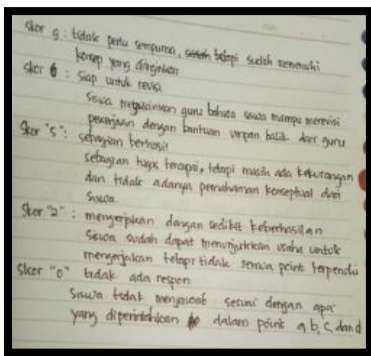 skor 9 : tidak perlu sempurna, tetapi sudah memenuhi
konsep yang diinginkan
skor 6 : siap untuk revisi
siswa meyakinkan guru bahwa siswa mampu merevisi
pekerjaan dengan bantuan umpan balik dari guru
Skor "5" : sebagian berhasil
sebagian tugas tercapai, tetapi masih ada kekurangan
dan tidak adanya pemahaman konseptual dari
siswa.
Skor "2" : mengerjakan dengan sedikit keberhasilan
Siswa sudah dapat menunjukkan usaha untuk
mengerjakan tetapi tidak semua point terpenuhi
Skor "0" tidak ada respon
Siswa tidak menjawab sesuai dengan apa
yang diperintahkan dalam point a, b, c, dan d